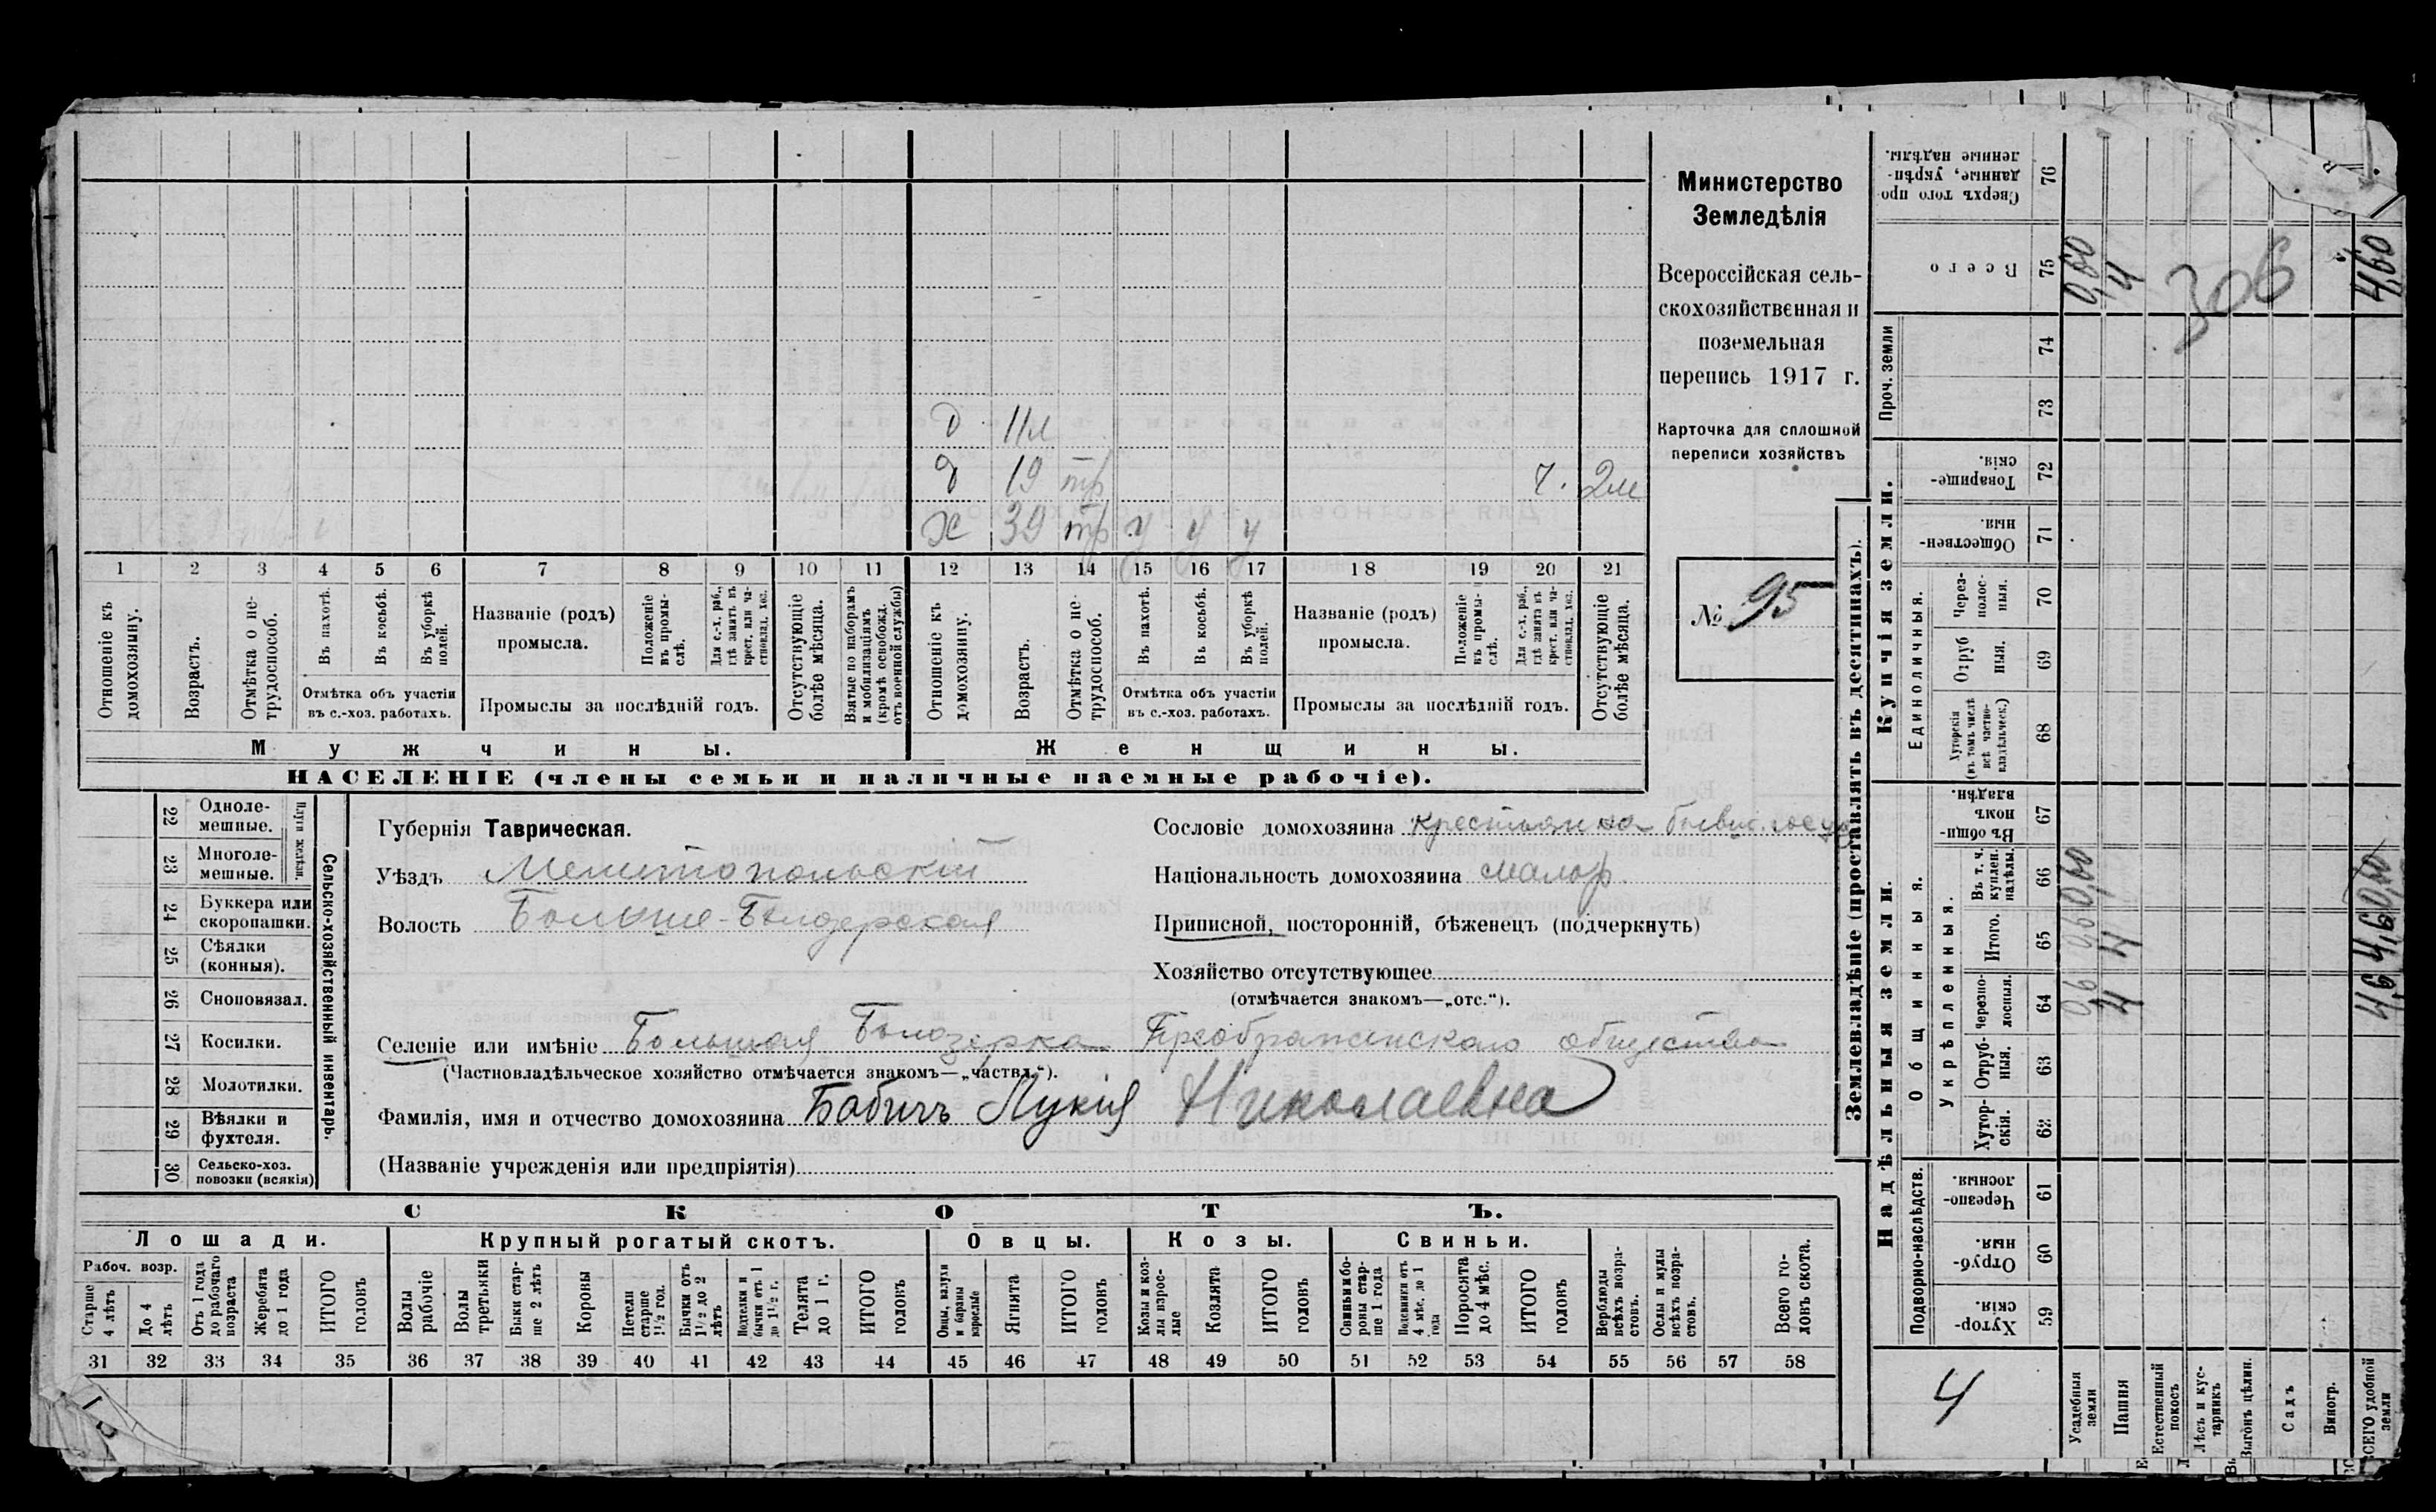 Министерство
Земледѣлія
Всероссійская сель-
скохозяйственная и
поземельная
перепись 1917 г.
Карточка для сплошной
переписи хозяйствъ
№ 95
д 11л
д 19 тр 2м
ж 39 тр у у у
1 2 3 4 5 6 7 8 9 10 11 12 13 14 15 16 17 18 19 20 21
Отношеніе къ домохозяину.
Возрастъ.
Отмѣтка о не-трудоспособ.
Въ пахотѣ.
Въ косьбѣ.
Въ уборкѣ полей.
Отмѣтка объ участіи въ с.-хоз. работахъ.
Названіе (родъ) промысла.
Положеніе въ промы-слѣ.
Для с.-х. раб., гдѣ занятъ въ крест. или ча-стновлад. хоз.
Промыслы за послѣдній годъ.
Отсутствующіе болѣе мѣсяца.
Взятые по наборамъ и мобилизаціямъ (кромѣ освобожд. отъ военной службы)
Отношеніе къ домохозяину.
Возрастъ.
Отмѣтка о не-трудоспособ.
Въ пахотѣ.
Въ косьбѣ.
Въ уборкѣ полей.
Отмѣтка объ участіи въ с.-хоз. работахъ.
Названіе (родъ) промысла.
Положеніе въ промы-слѣ.
Для с.-х. раб., гдѣ занята въ крест. или ча-стновлад. хоз.
Промыслы за послѣдній годъ.
Отсутствующіе болѣе мѣсяца.
Мужчины. Женщины.
НАСЕЛЕНІЕ (члены семьи и наличные наемные рабочіе).
Сельско-хозяйственный инвентарь.
Плуги желѣзн.
22 Одноле-мешные.
23 Многоле-мешные.
24 Буккера или скоропашки.
25 Сѣялки (конныя).
26 Сноповязал.
27 Косилки.
28 Молотилки.
29 Вѣялки и фухтеля.
30 Сельско-хоз. повозки (всякія)
Губернія Таврическая.
Уѣздъ Мелитопольскій
Волость Больше-Бѣлозерская
Сословіе домохозяина
Національность домохозяина малор.
Приписной, посторонній, бѣженецъ (подчеркнуть)
Хозяйство отсутствующее
(отмѣчается знакомъ—„отс.“).
Селеніе или имѣніе Большая Бѣлозерка Преображенскаго общества
(Частновладѣльческое хозяйство отмѣчается знакомъ—„частвл.“).
Фамилія, имя и отчество домохозяина Бабичъ Лукія Николаевна
(Названіе учрежденія или предпріятія)
СКОТЪ.
Лошади. Крупный рогатый скотъ. Овцы. Козы. Свиньи.
Рабоч. возр.
Старше 4 лѣтъ
До 4 лѣтъ
Отъ 1 года до рабочаго возраста
Жеребята до 1 года
ИТОГО головъ
Волы рабочіе
Волы третьяки
Быки стар-ше 2 лѣтъ
Коровы
Нетели старше 1½ год.
Бычки отъ 1½ до 2 лѣтъ
Подтелки и бычки отъ 1 до 1½ г.
Телята до 1 г.
ИТОГО головъ
Овцы, валухи и бараны взрослые
Ягнята
ИТОГО головъ
Козы и коз-лы взрос-лые
Козлята
ИТОГО головъ
Свиньи и бо-ровы стар-ше 1 года
Подсвинки отъ 4 мѣс. до 1 года
Поросята до 4 мѣс.
ИТОГО головъ
Верблюды всѣхъ возра-стовъ.
Ослы и мулы всѣхъ возра-стовъ.
Всего го-ловъ скота.
31 32 33 34 35 36 37 38 39 40 41 42 43 44 45 46 47 48 49 50 51 52 53 54 55 56 57 58
Землевладѣніе (проставлять въ десятинахъ).
Купчія земли.
Надѣльныя земли.
Сверхъ того про-данные, укрѣп-ленные надѣлы. 76
Всего 75 0,60 4 4,60
306
Проч. земли 74 73
Товарище-скія. 72
Обществен-ныя. 71
Единоличныя.
Через-полос-ныя. 70
Отруб-ныя. 69
Хуторскія (въ томъ числѣ всѣ частно-владѣльческ.) 68
Общинныя.
Въ общи-номъ владѣн. 67
Укрѣпленныя.
Въ т. ч. куплен. надѣлы. 66
Итого. 65
Черезпо-лосныя. 64
Отруб-ныя. 63
Хутор-скія. 62
Подворно-наслѣдств.
Черезпо-лосныя. 61
Отруб-ныя. 60
Хутор-скія. 59
4
Усадебныя земли
Пашня
Естественный покосъ
Лѣсъ и кус-тарникъ
Выгонъ цѣлин.
Садъ
Виногр.
ВСЕГО удобной земли